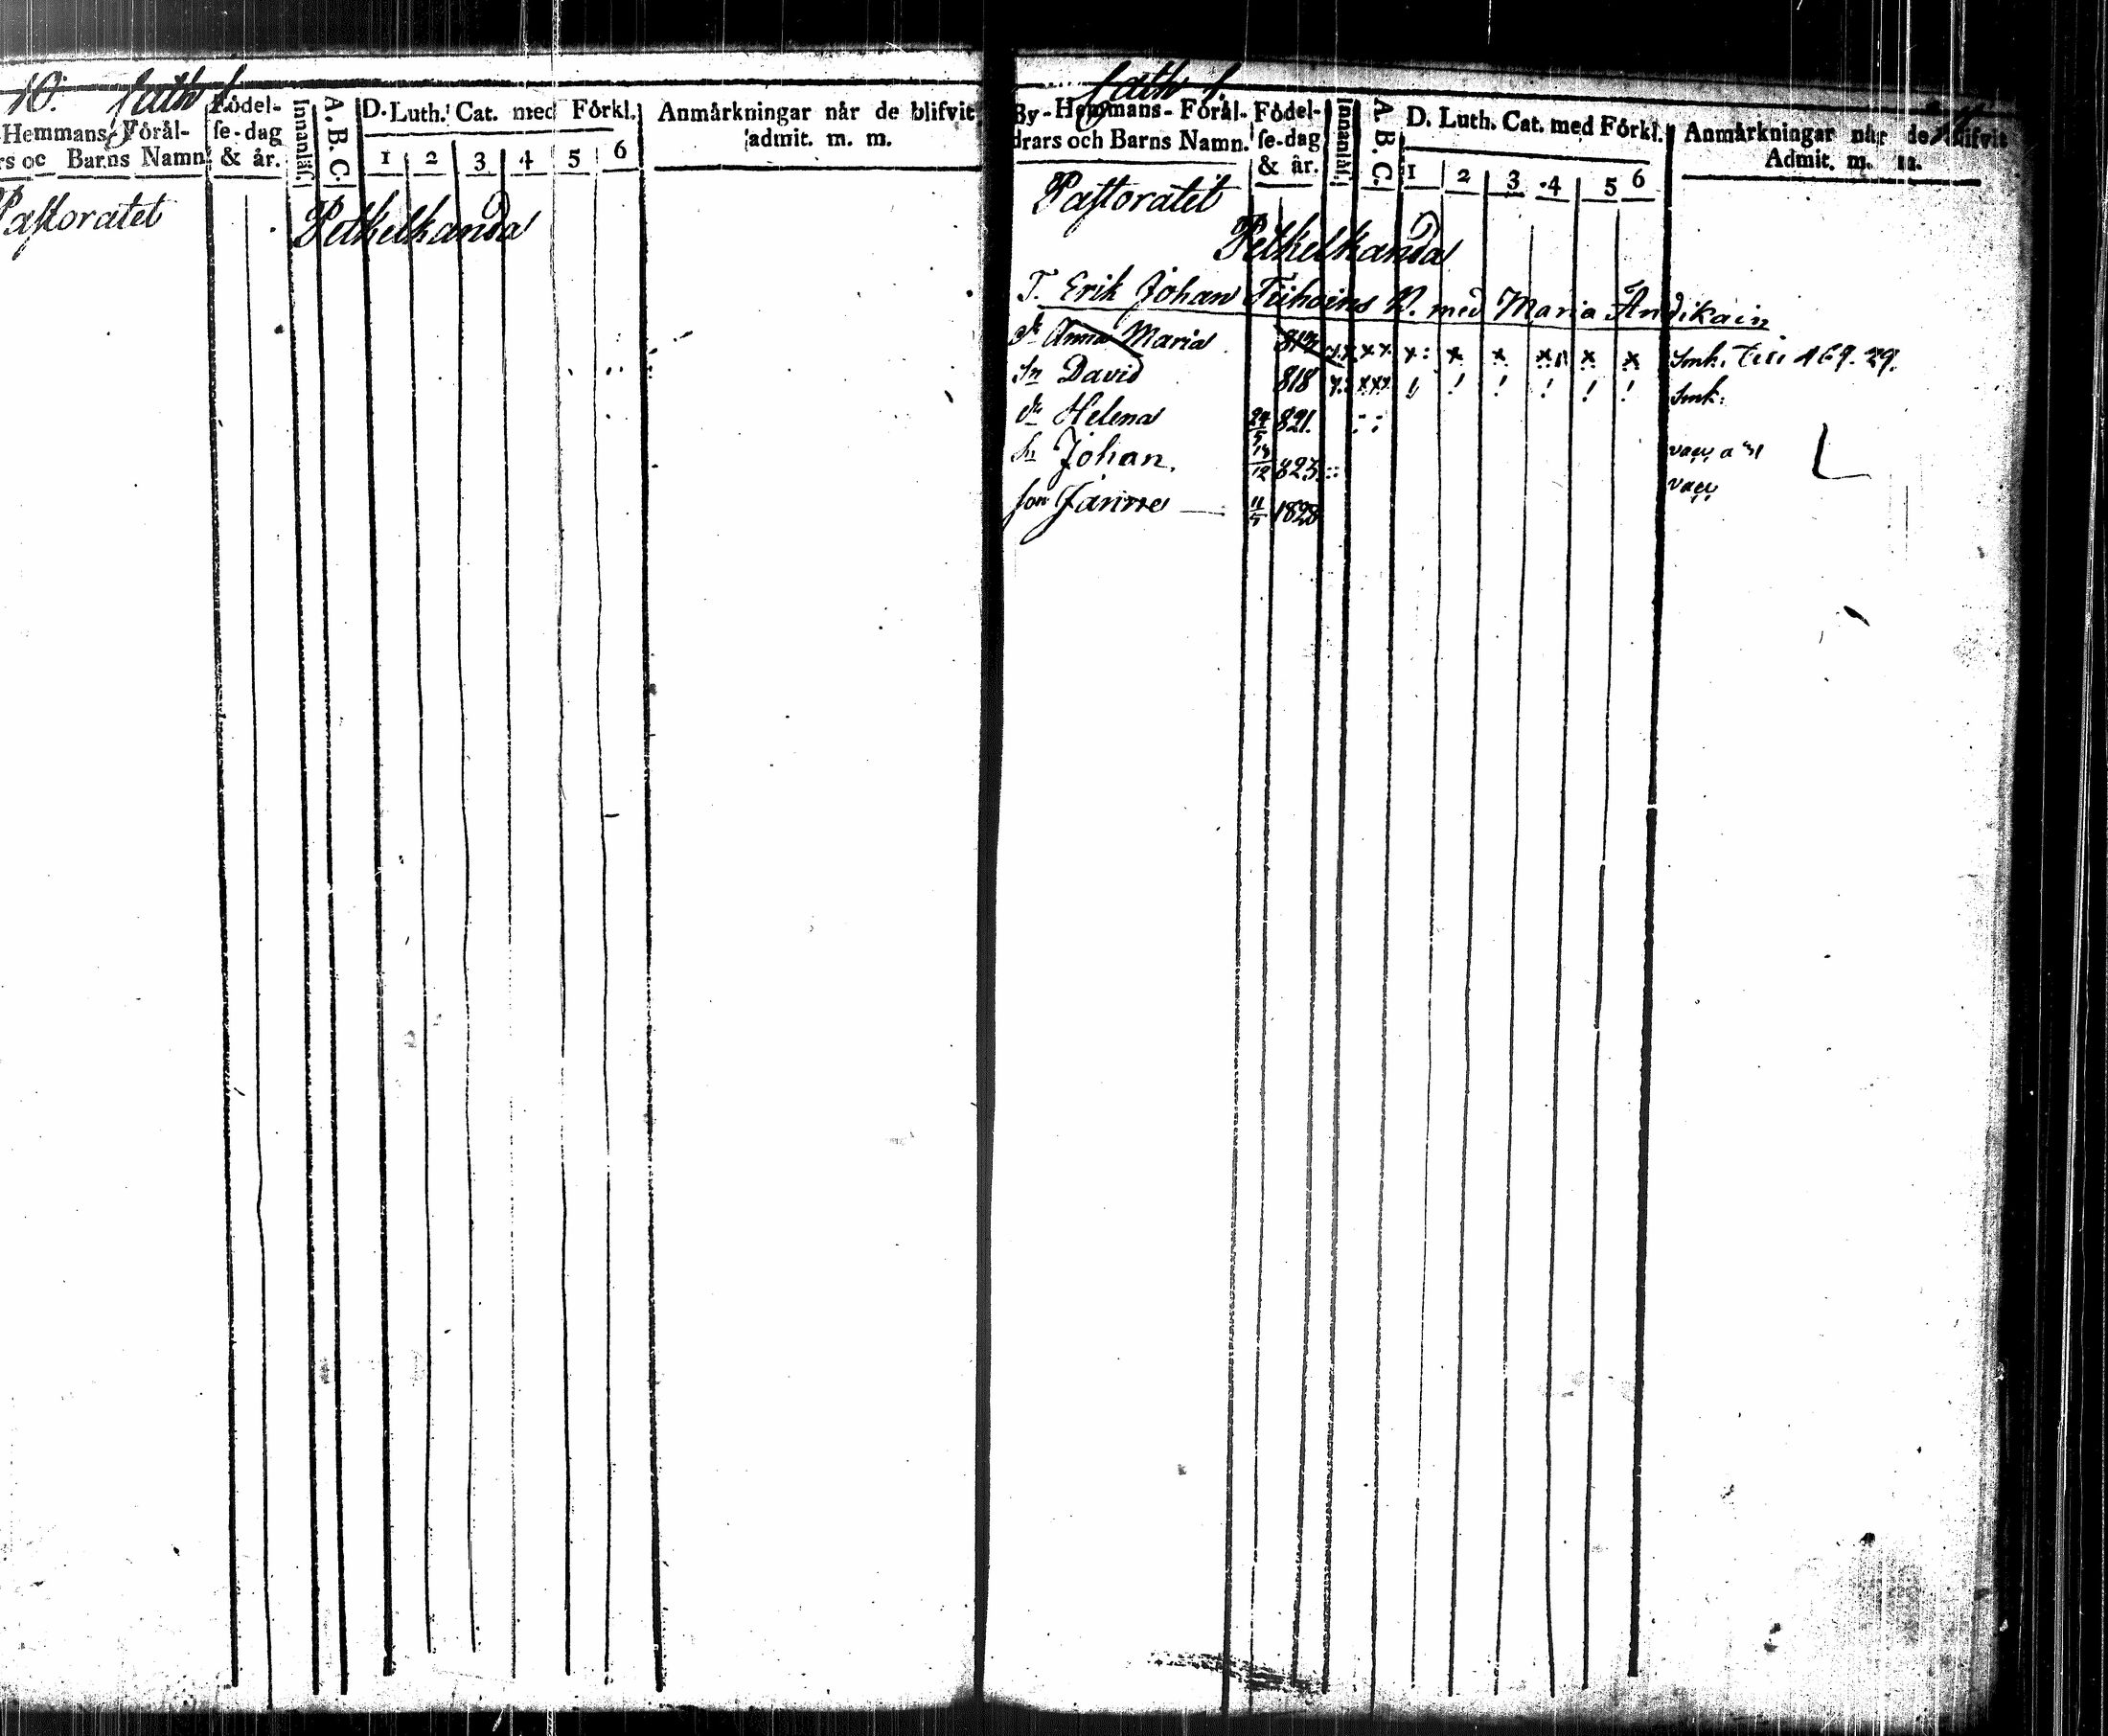 10.
Hemmans- Förål-
Barns Namn.
Födel-
se-dag
& år.
Innanläs.
A. B. C.
D. Luth. Cat. med Förkl.
1 2 3 4 5 6
Anmärkningar når de blifvit
admit. m. m.
Pastoratet
Pelkelkanda
By- Hemmans- Förål-
drars och Barns Namn.
Födel-
se-dag
& år.
Innanläs.
A. B. C.
D. Luth. Cat. med Förkl.
1 2 3 4 5 6
Anmärkningar når de blifvit
Admit. m. m.
Pastoratet
Pelkelkanda
T. Erik Johan Tiihoins B. med Maria Andikain
dr Anna Maria 813 x x x x x x Smk. Till 169. 29.
Sn David 818 ! ! ! ! ! ! Smk.
dr Helena 24/5 821.
Sn Johan. 13/12 825 vacc
son Janne — 11/5 1828 vacc